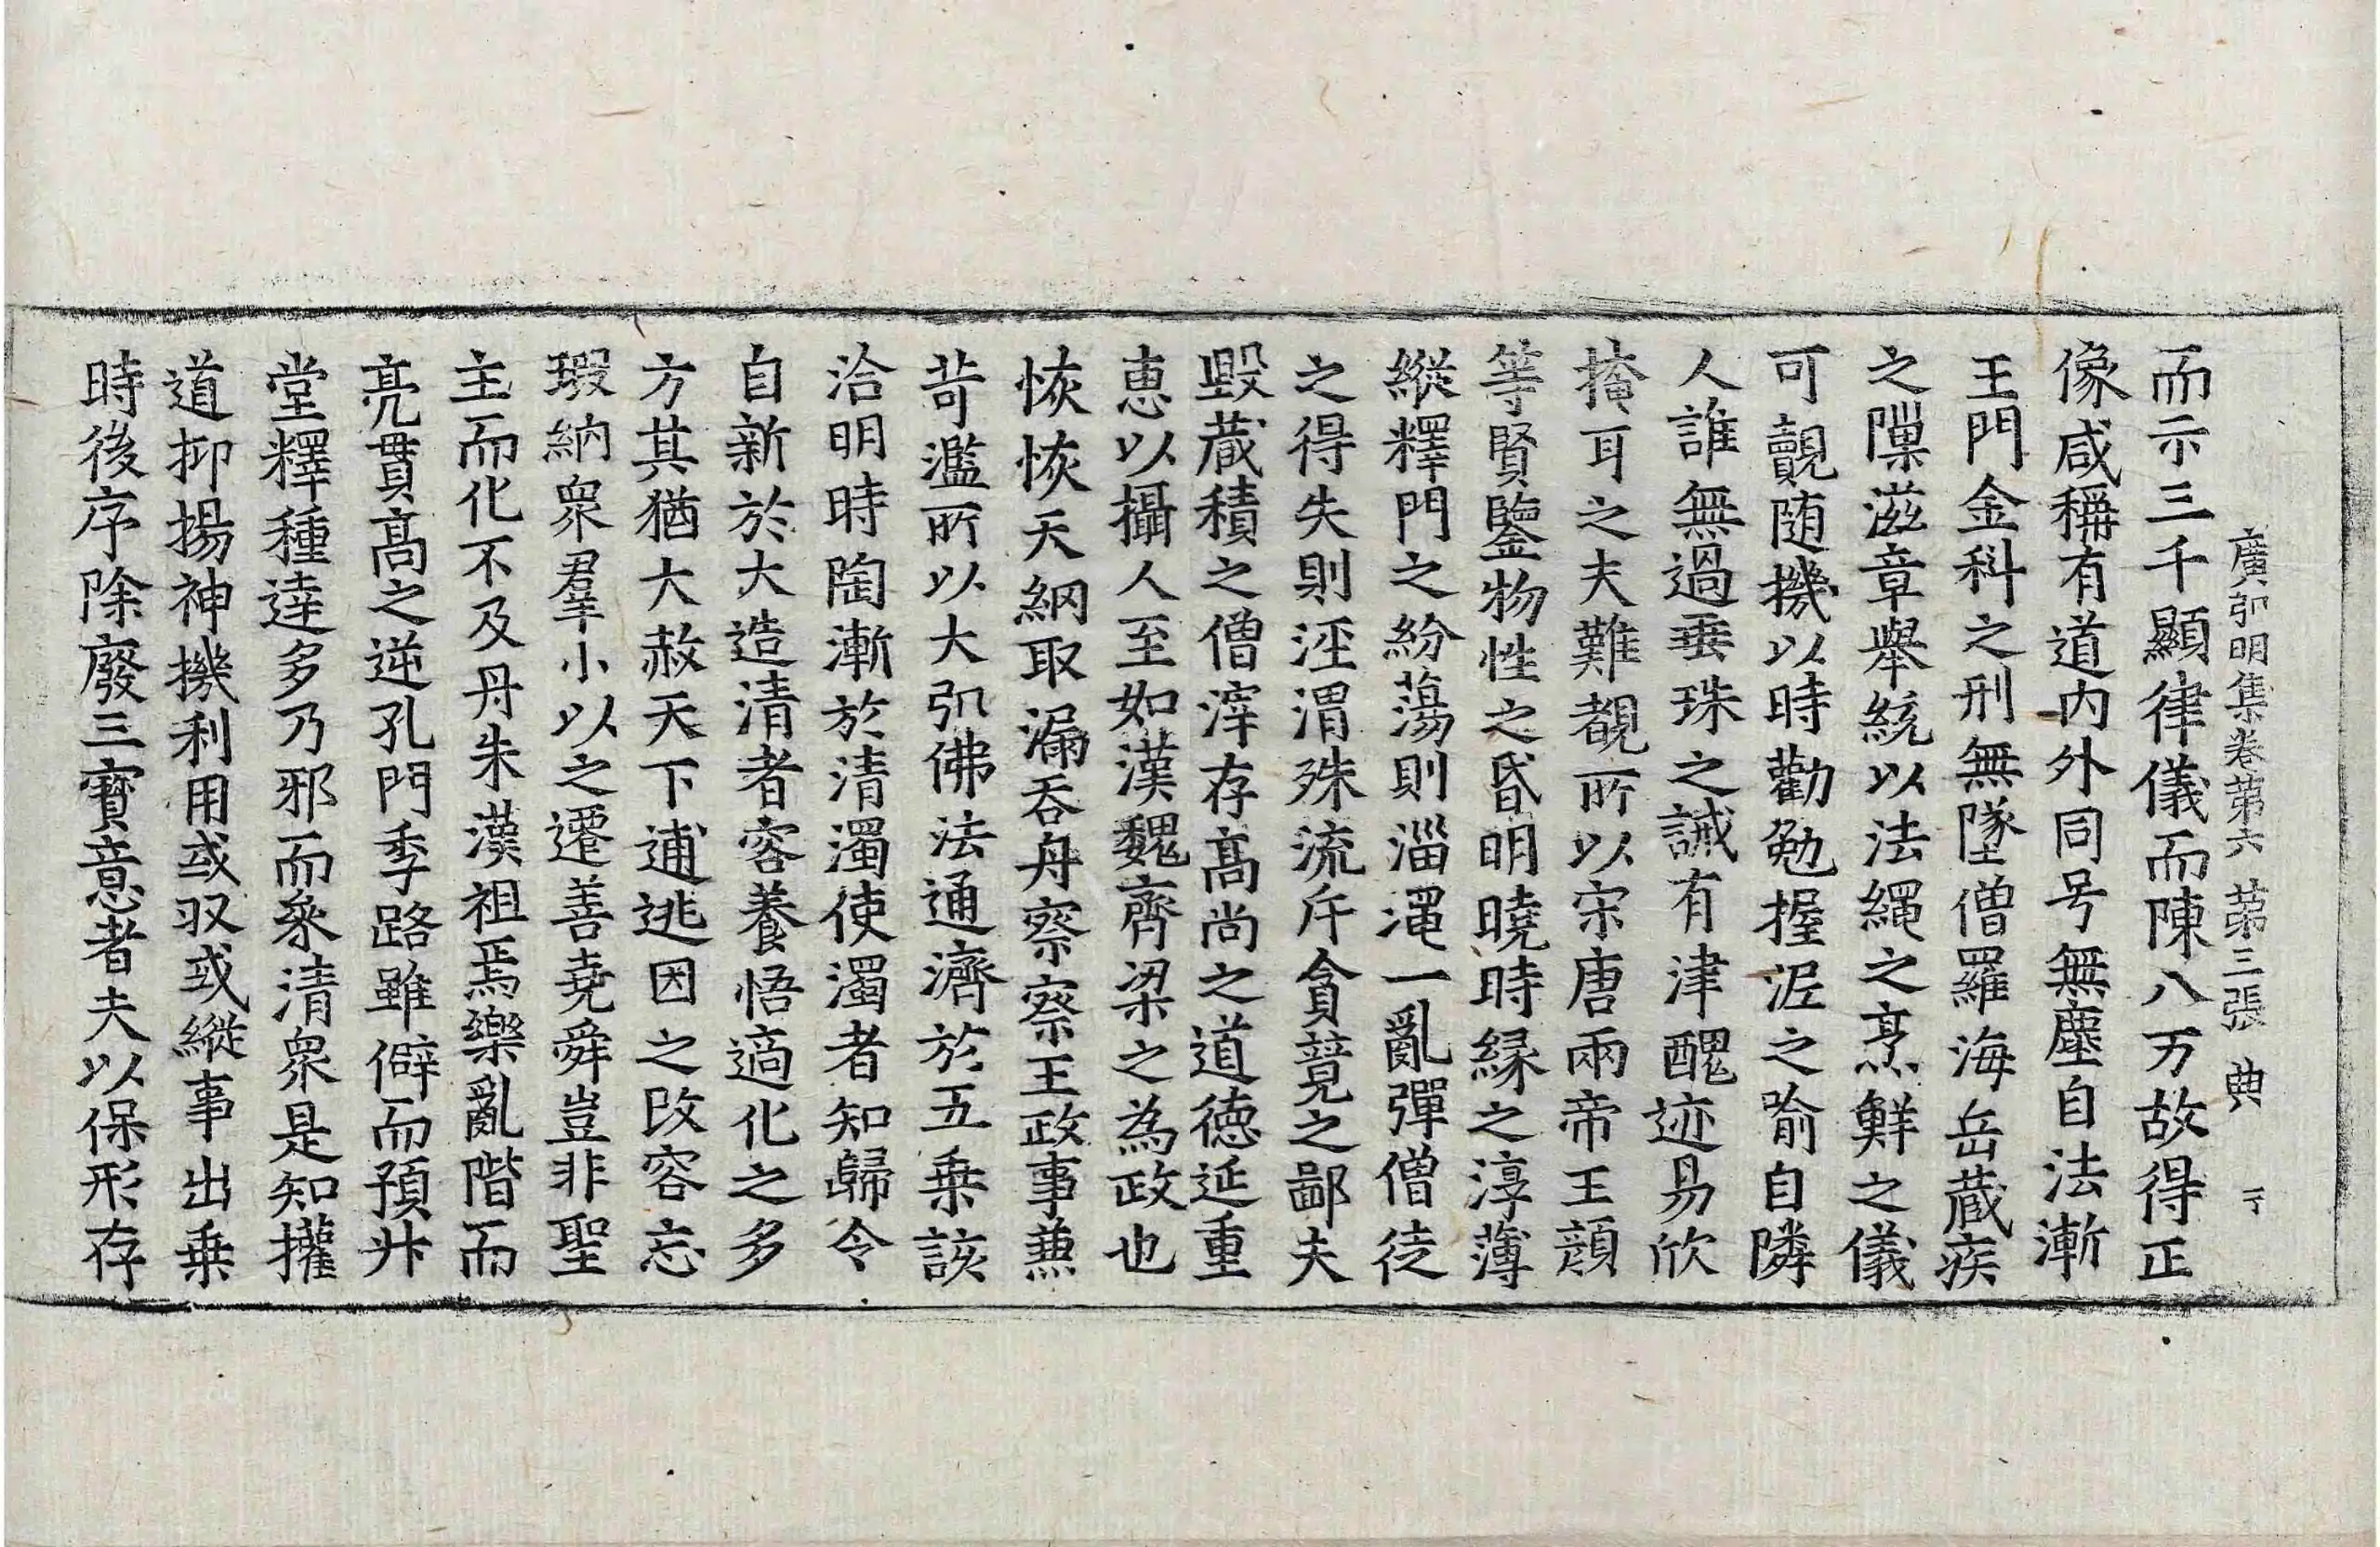 廣弘明集卷第六 第三張 典
而示三千顯律儀而陳八万故得正
像咸稱有道内外同号無塵自法漸
王門金科之刑無墜僧羅海岳蔵疾
之隟滋章舉統以法繩之烹鮮之儀
可覿随機以時勸勉握泥之喻自隣
人誰無過垂珠之誡有津醜迹易欣
掩耳之夫難覩所以宋唐兩帝王顔
等賢鑒物性之昏明曉時縁之淳薄
縱釋門之紛蕩則淄澠一亂彈僧徒
之得失則涇渭殊流斥貪競之鄙夫
毀蔵積之僧滓存髙尚之道徳延重
恵以攝人至如漢魏齊梁之為政也
恢恢天綱取漏吞舟察察王政事兼
苛濫所以大弘佛法通濟於五乗該
洽明時陶漸於清濁使濁者知歸令
自新於大造清者容養悟適化之多
方其猶大赦天下逋逃因之改容忘
瑕納衆羣小以之遷善堯舜豈非聖
主而化不及丹朱漢祖焉樂亂階而
亮貫髙之逆孔門季路雖僻而預升
堂釋種達多乃邪而參清衆是知權
道抑揚神機利用或収或縱事出乗
時後序除廢三寳意者夫以保形存